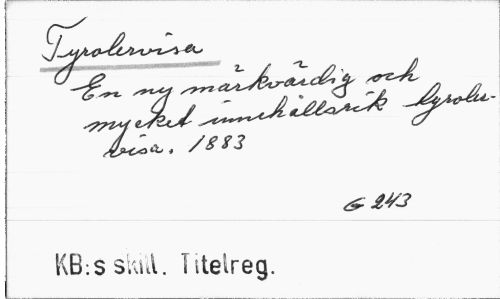 Tyrolervisa
En ny märkvärdig och
mycket innehållsrik tyroler-
visa. 1883
G 243
KB:s skill. Titelreg.